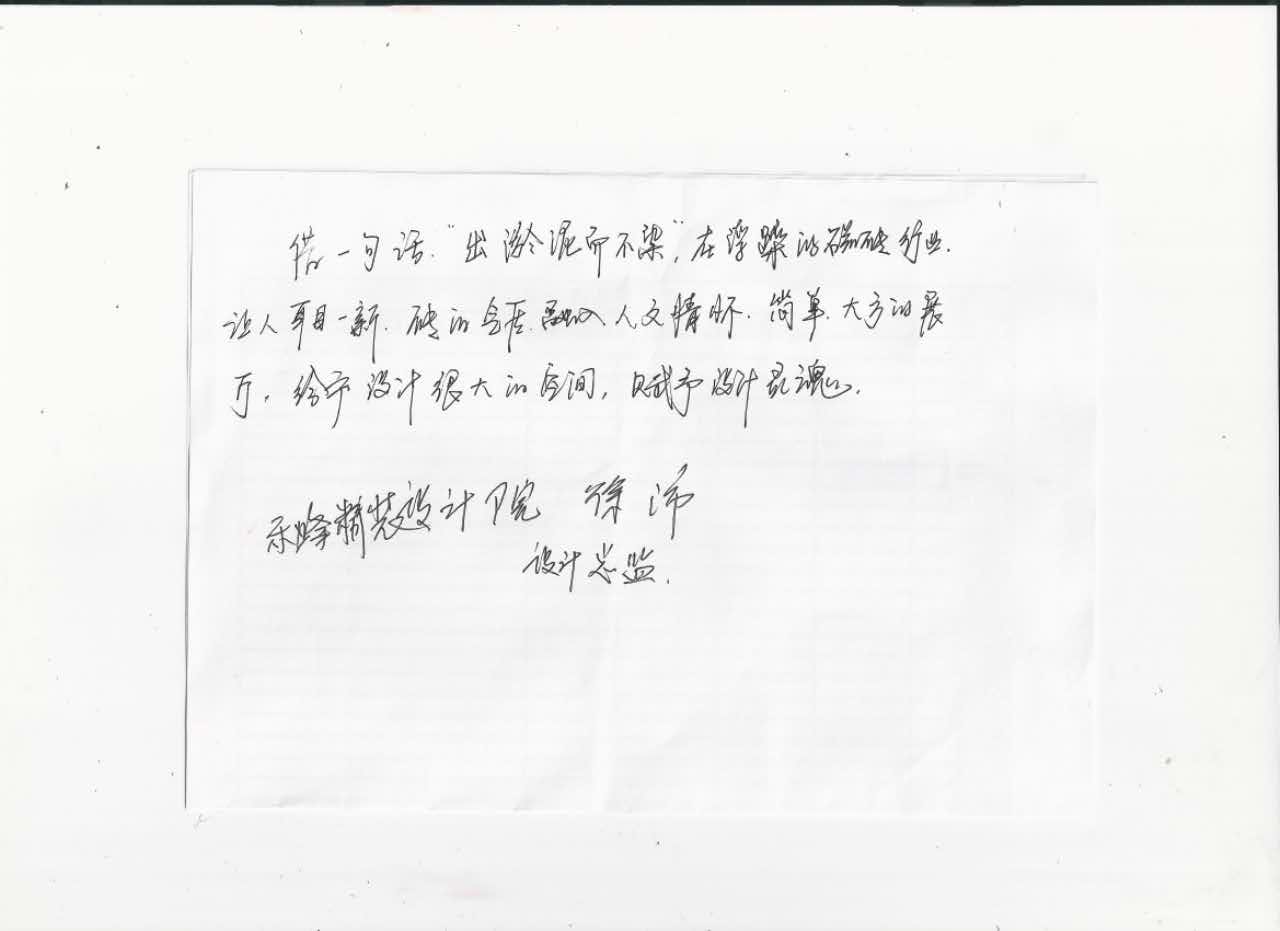 借一句话.“出淤泥而不染”,在浮躁的磁砖行业.
让人耳目一新.砖的含
融入人文情怀.简单.大方的展
厅.给予设计很大的空间,赋予设计灵魂.
峰精装设计院 徐沛
设计总监.